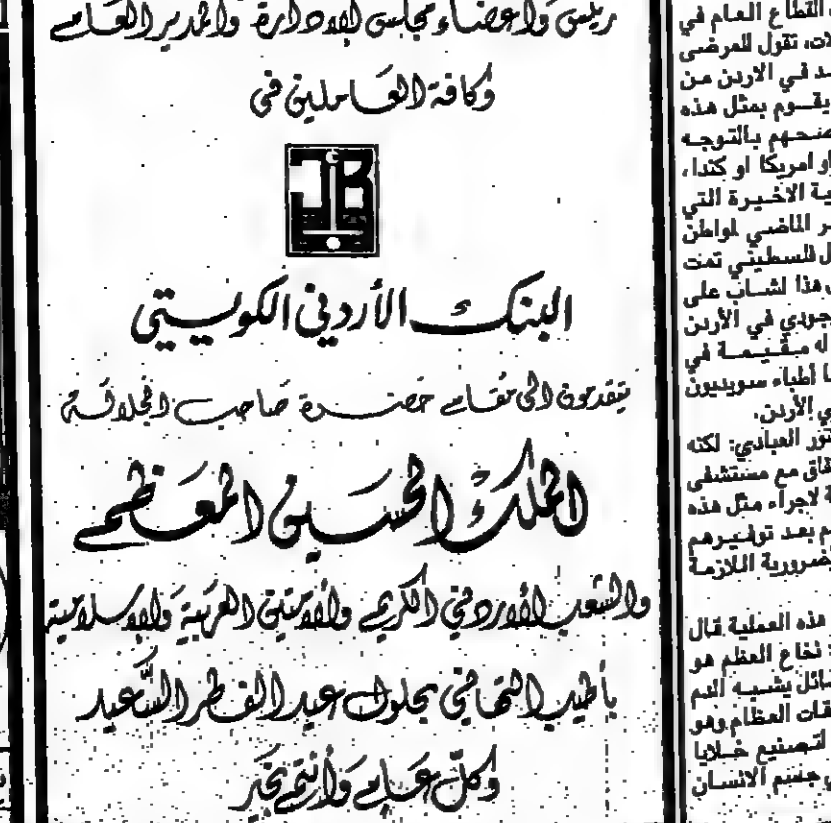 رئيس وأعضاء مجلس الإدارة والمدير العام
وكافة العاملين في
JKB
البنك الأردني الكويتي
يتقدمون الى مقام حضرة صاحب الجلالة
الملك الحسين المعظم
والشعب الأردني الكريم والأمتين العربية والإسلامية
بأطيب التهاني بحلول عيد الفطر السَّعيد
وكلّ عام وأنتم بخير
القطاع العام في
لات، تقول للمرضى
في الاردن من
يقوم بمثل هذه
بالتوجه
او امريكا او كندا،
الاخيرة التي
الماضي لمواطن
فلسطيني تمت
هذا لشاب على
في الأردن
له مقيمة في
أطباء سويديون
ي الأردن.
العبادي: لكنه
مع مستشفى
لاجراء مثل هذه
بعد توفيرهم
اللازمة
هذه العملية قال
نخاع العظم هو
يشبه الدم
العظام وهو
لتصنيع خلايا
جسم الانسان